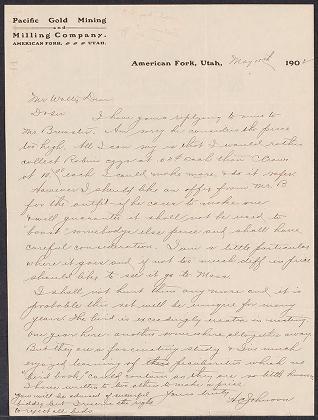 Pacific Gold Mining
and
Milling Company.
AMERICAN FORK, UTAH.
American Fork, Utah, May 190
Mr Walter
D Sir
I have yours replying to mine to
Mr Brewster. Am sorry he considers the price
too high. All I can say is that I would rather
collect Robins eggs at 00¢ each than
at each I could make more & do it
However I should like an offer from Mr. B
for the outfit if he cares to make one
& will guarantee it shall not be used to
"boost" somebody else price and shall have
careful consideration. I am a little particular
where it goes and if not too much diff in price
should like to see it go to Mass.
I shall not hunt them any more and it is
probable this set will be unique for many
years. The bird is exceedingly erratic in nesting
one year here another somewhere altogether away
But they are a fascinating study & I've much
enjoyed of their peculiarities which no
could contain as they are not known
I have written to two others to make a price
You will be advised of
but I reserve the right
to reject all bids.
Yours truly
H C Johnson